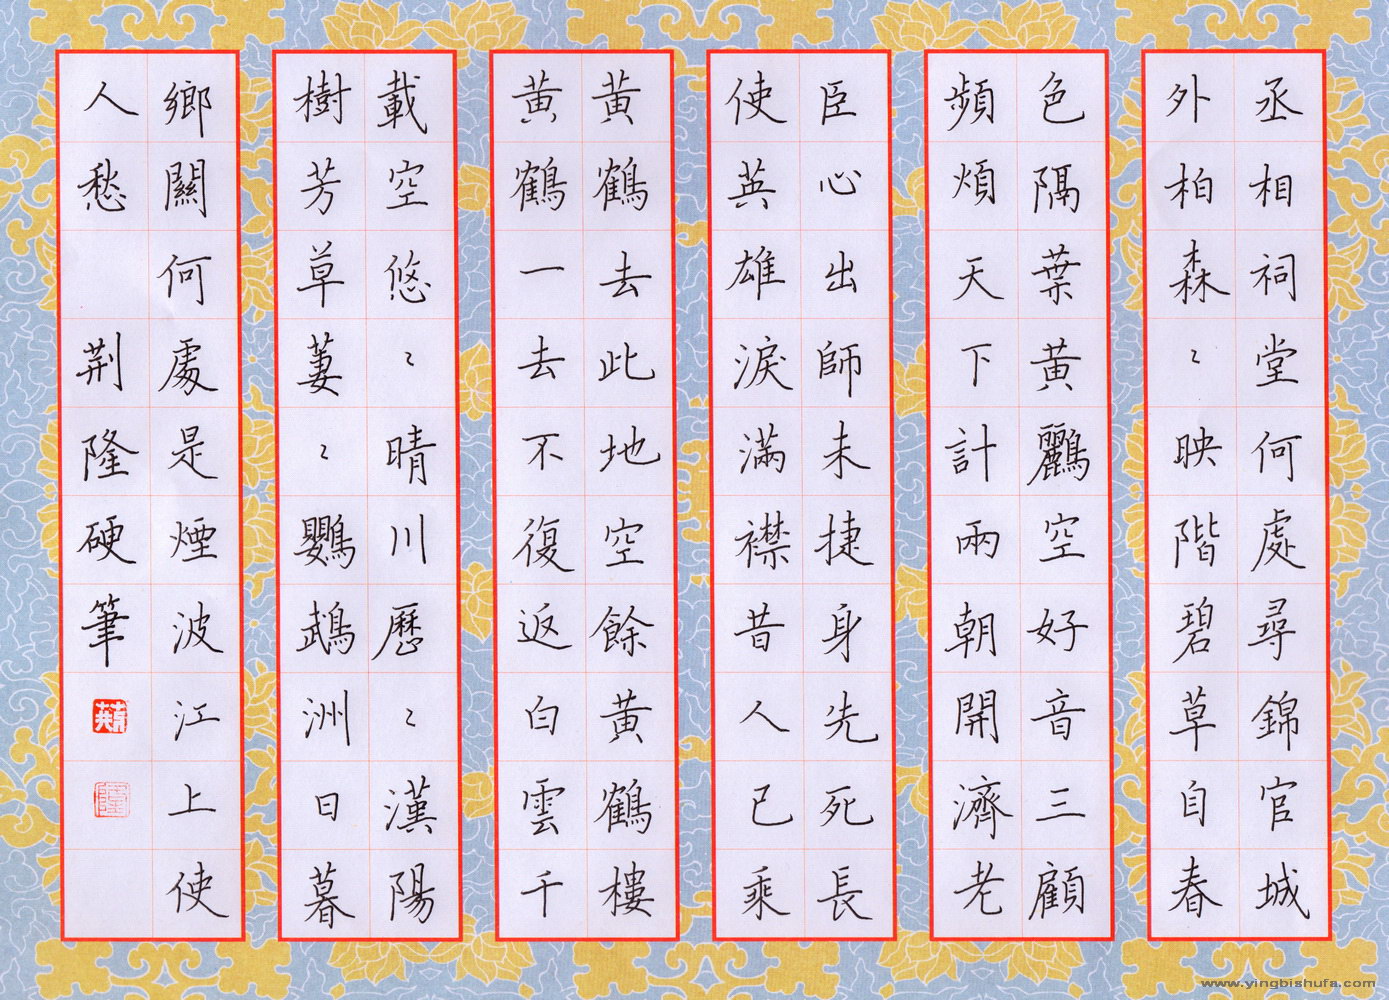 丞相祠堂何處尋錦官城
外柏森〻映階碧草自春
色隔葉黃鸝空好音三顧
頻煩天下計兩朝開濟老
臣心出師未捷身先死長
使英雄淚滿襟昔人已乘
黃鶴去此地空餘黃鶴樓
黃鶴一去不復返白雲千
載空悠〻晴川歷〻漢陽
樹芳草萋〻鸚鵡洲日暮
鄉關何處是煙波江上使
人愁 荆隆硬筆
www.yingbishufa.com